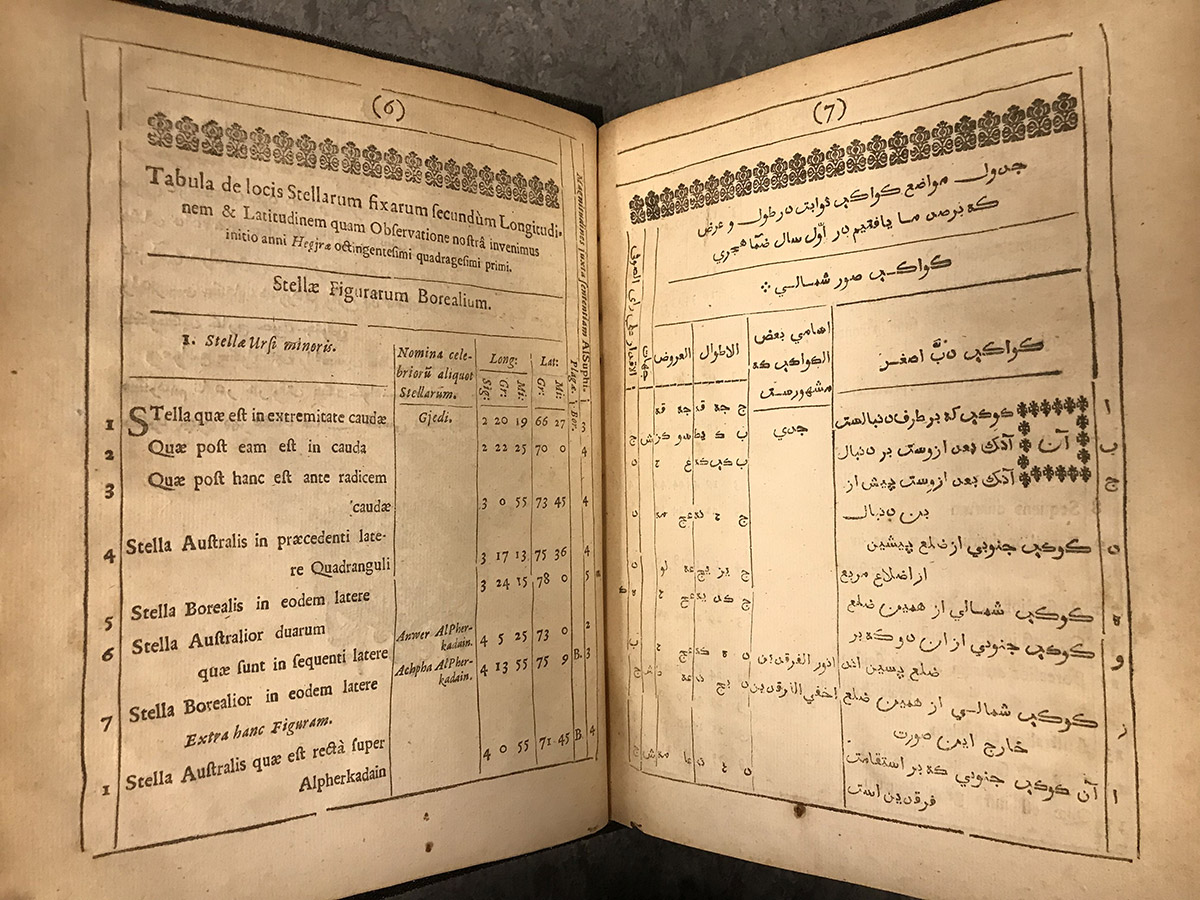 (6)
Tabula de locis Stellarum fixarum secundùm Longitudi-
nem & Latitudinem quam Observatione nostrâ invenimus
initio anni Hegjræ octingentesimi quadragesimi primi.
Stellæ Figurarum Borealium.
1. Stellæ Ursi minoris.
Nomina cele-
briorū aliquot
Stellarum.
Long:
Sig: Gr: Mi:
Lat:
Gr: Mi:
Magnitudines juxta sententiam AlSuphi.
1 STella quæ est in extremitate caudæ Gjedi. 2 20 19 66 27 3
2 Quæ post eam est in cauda 2 22 25 70 0 4
3 Quæ post hanc est ante radicem
caudæ 3 0 55 73 45 4
4 Stella Australis in præcedenti late-
re Quadranguli 3 17 13 75 36 4
5 Stella Borealis in eodem latere 3 24 15 78 0 5
6 Stella Australior duarum
quæ sunt in sequenti latere Anwer AlPher-
kadain. 4 5 25 73 0 2
7 Stella Borealior in eodem latere Achpha AlPher-
kadain. 4 13 55 75 9 B. 3
Extra hanc Figuram.
1 Stella Australis quæ est rectà super
Alpherkadain 4 0 55 71 45 B. 4
(7)
جدول مواضع كواكب ثوابت در طول و عرض
كه برصد ما يافتيم در أوّل سال ضما هجري
كواكب صور شمالي
كواكب دبّ اصغر
اسامي بعض
الكواكب كه
مشهورست
الاطوال
العروض
جهات
ا كوكبي كه بر طرف دنبالست
جدي
ب آن آنك بعد ازوست بر دنبال
ج آنك بعد ازوست پيش از
بن دنبال
د كوكب جنوبي از ضلع پيشين
از اضلاع مربع
ه كوكب شمالي از همين ضلع
و كوكب جنوبي از ان دو كه بر
ضلع پسين اند انور الفرقدين
ز كوكب شمالي از همين ضلع اخفي الفرقدين
خارج اين صورت
ا آن كوكب جنوبي كه بر استقامت
فرقدين است